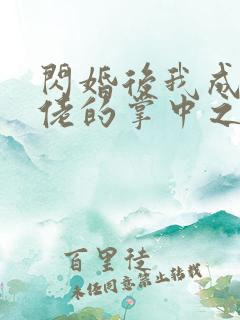 閃婚後我成
佬的掌中之
百里徒
未經同意禁止轉載